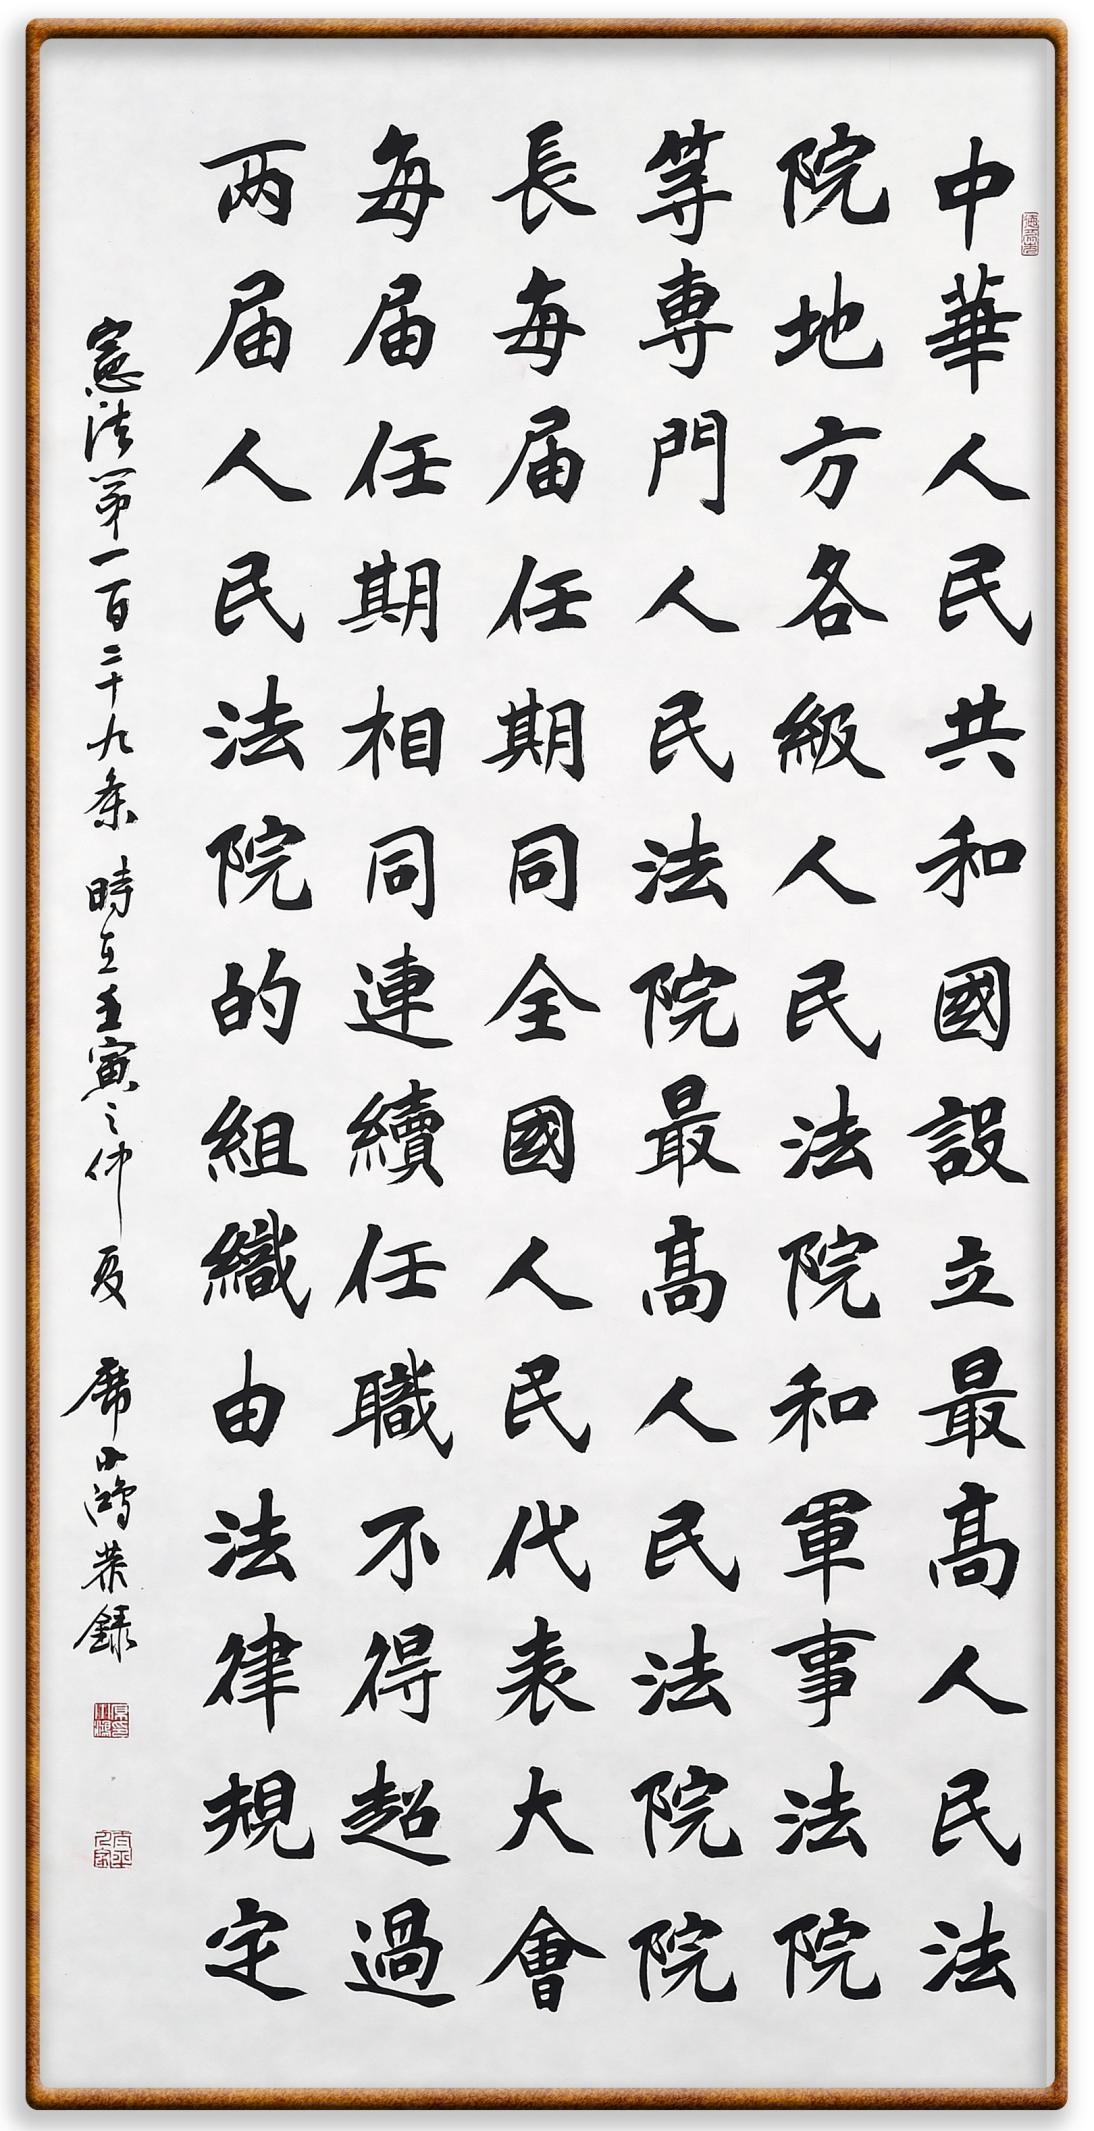 中華人民共和國設立最高人民法
院地方各級人民法院和軍事法院
等專門人民法院最高人民法院院
長每届任期同全國人民代表大會
每届任期相同連續任職不得超過
两届人民法院的組織由法律規定
憲法第一百二十九条 時在壬寅之仲夏 席小鴻恭録